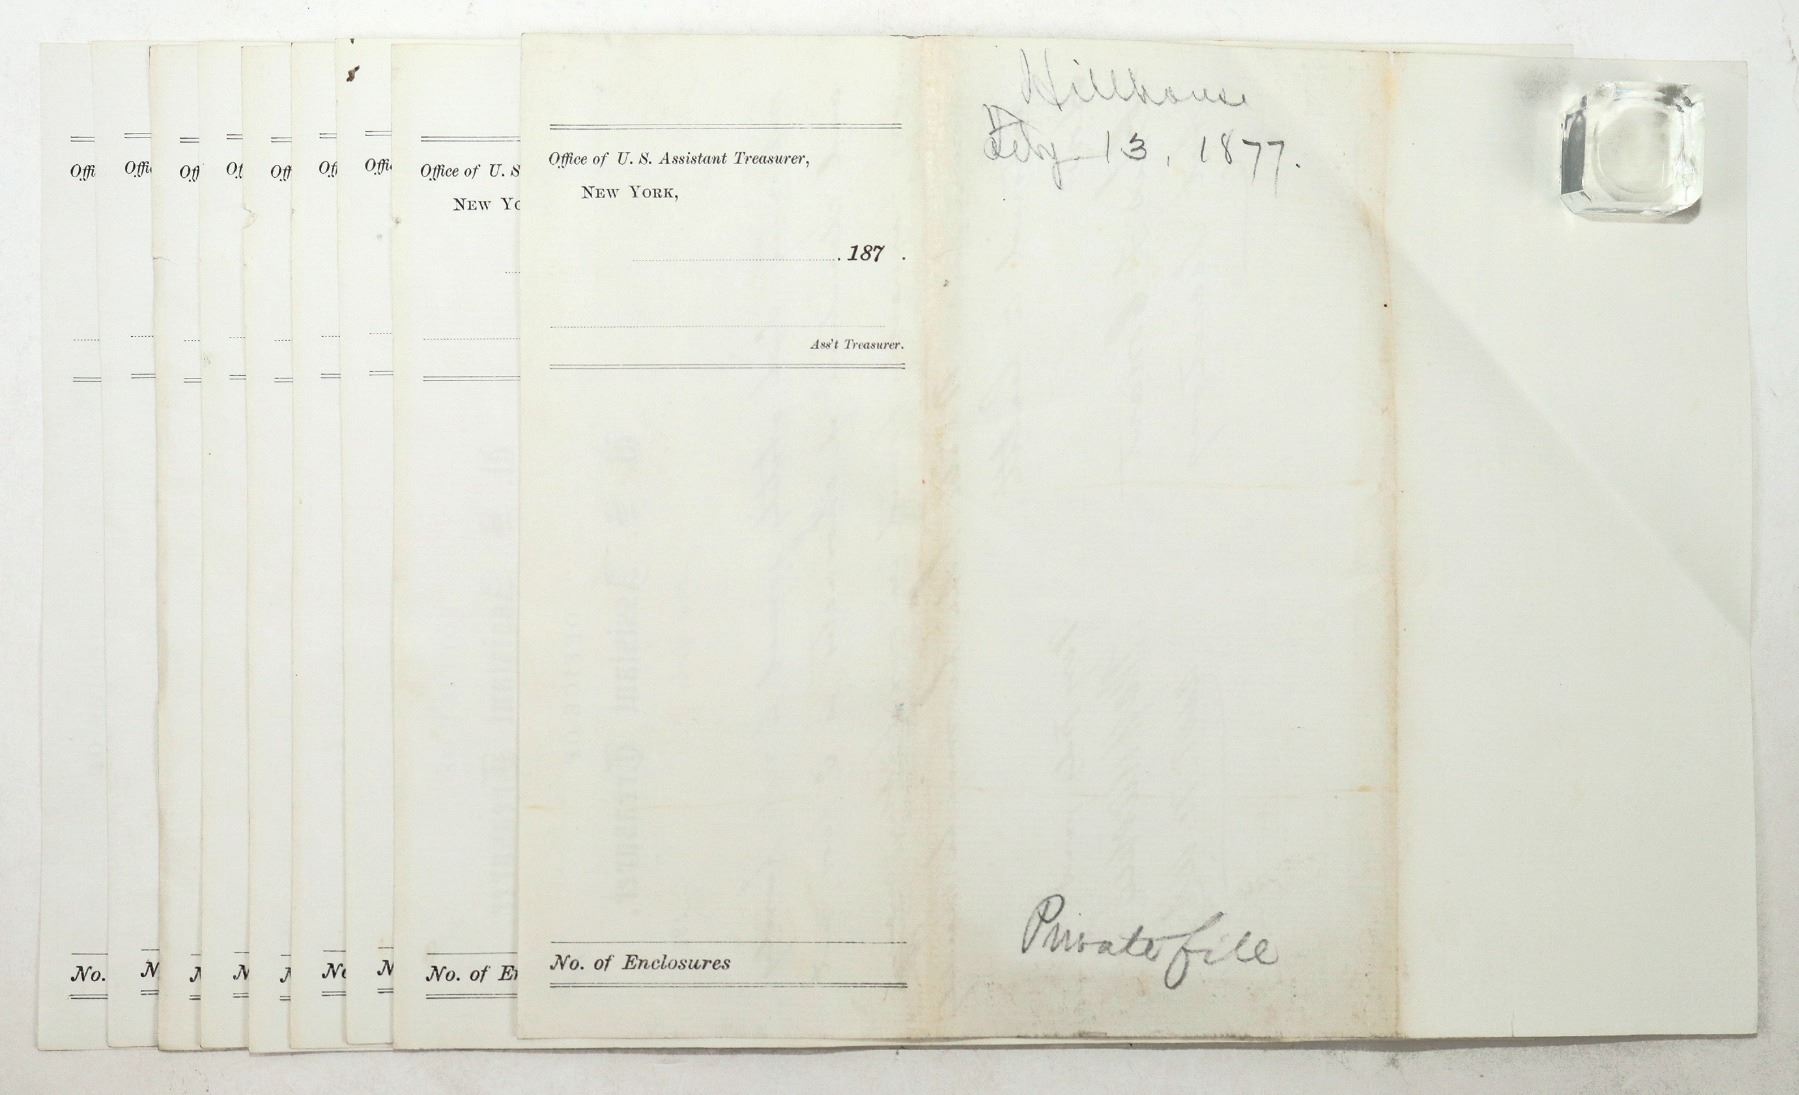 Offi
Offi
Off
Of
Off
Off
Offi
Office of U. S
NEW YO
Office of U. S. Assistant Treasurer,
NEW YORK,
187 .
Ass't Treasurer.
No. of Enclosures
No.
N
N
N
N
No
N
No. of En
Hillhouse
Feby 13, 1877.
Private file